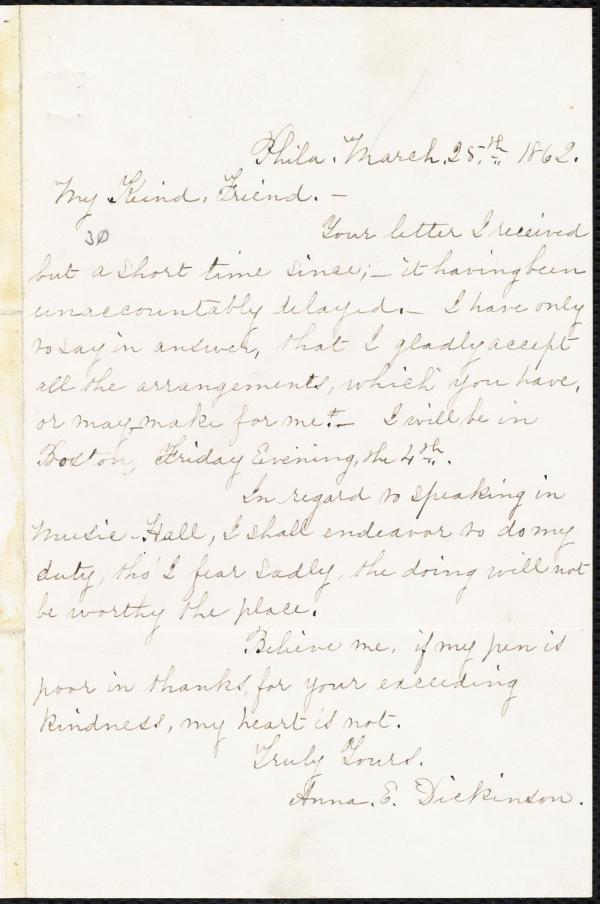 Phila. March, 28,th 1862.
My Kind. Friend. –
30
Your letter I received
but a short time since; – it having been
unaccountably delayed. – I have only
to say in answer, that I gladly accept
all the arrangements, which you have,
or may make for me. – I will be in
Boston, Friday Evening, the 4th.
In regard to speaking in
Music-Hall, I shall endeavor to do my
duty, tho' I fear sadly, the doing will not
be worthy the place.
Believe me, if my pen is
poor in thanks, for your exceeding
kindness, my heart is not.
Truly Yours.
Anna. E. Dickinson.